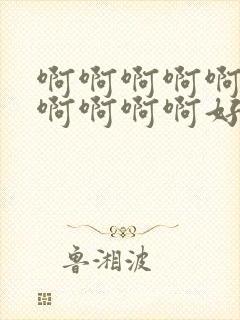 啊啊啊啊啊
啊啊啊啊好
鲁湘波